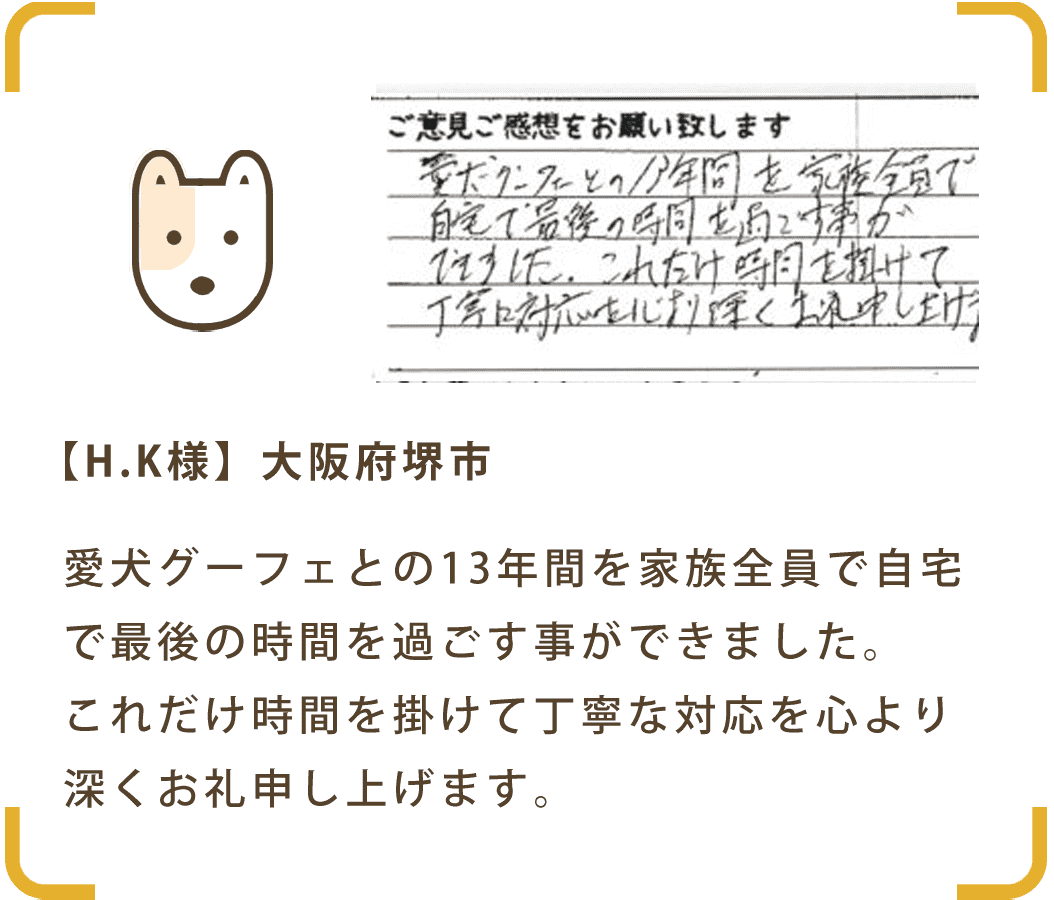 ご意見ご感想をお願い致します
愛犬グーフェとの13年間を家族全員で
自宅で最後の時間を過ごす事が
できました。これだけ時間を掛けて
丁寧な対応を心より深くお礼申し上げま
【H.K様】大阪府堺市
愛犬グーフェとの13年間を家族全員で自宅
で最後の時間を過ごす事ができました。
これだけ時間を掛けて丁寧な対応を心より
深くお礼申し上げます。